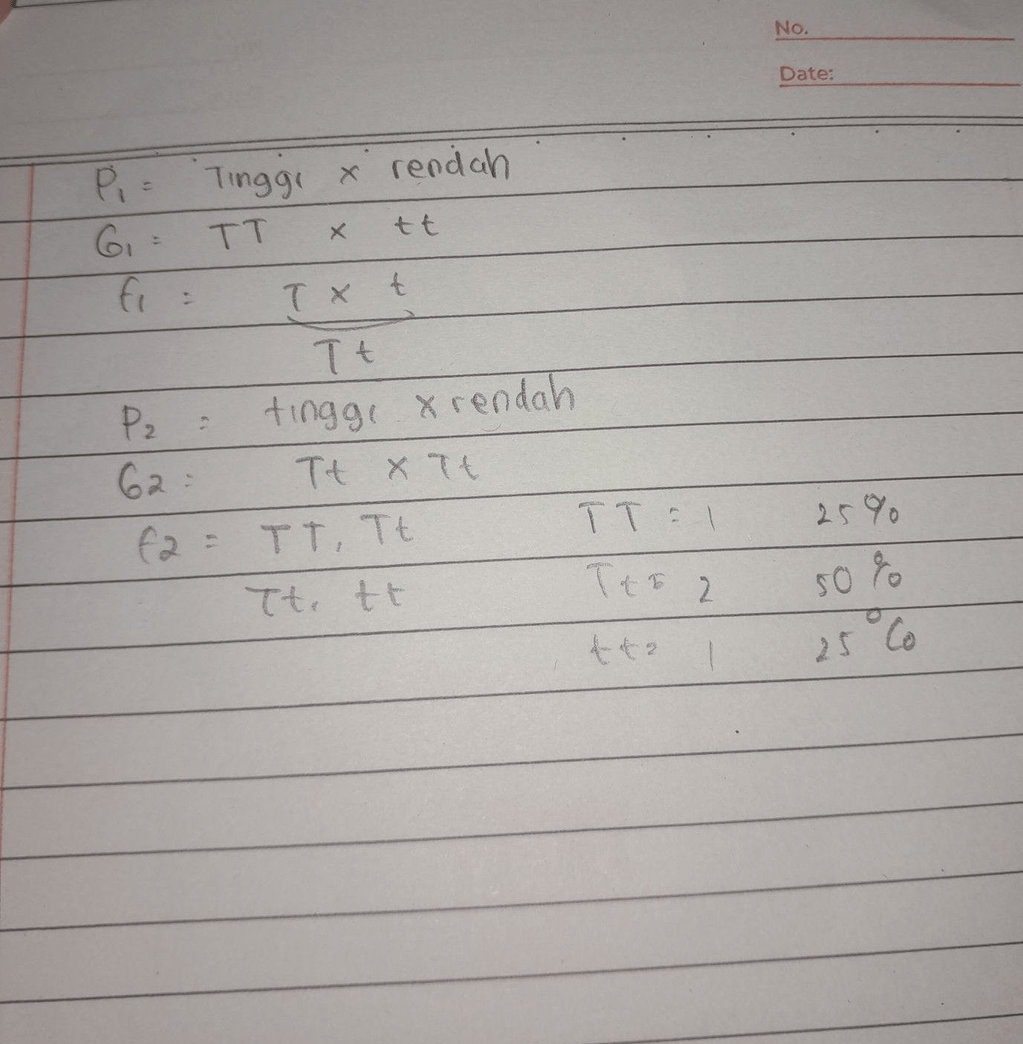 No.
Date:
P₁ = Tinggi x rendah
G₁ = TT x tt
f₁ = T x t
Tt
P₂ = tinggi x rendah
G2 = Tt x Tt
f2 = TT, Tt TT = 1 25%
Tt, tt Tt = 2 50%
tt = 1 25%